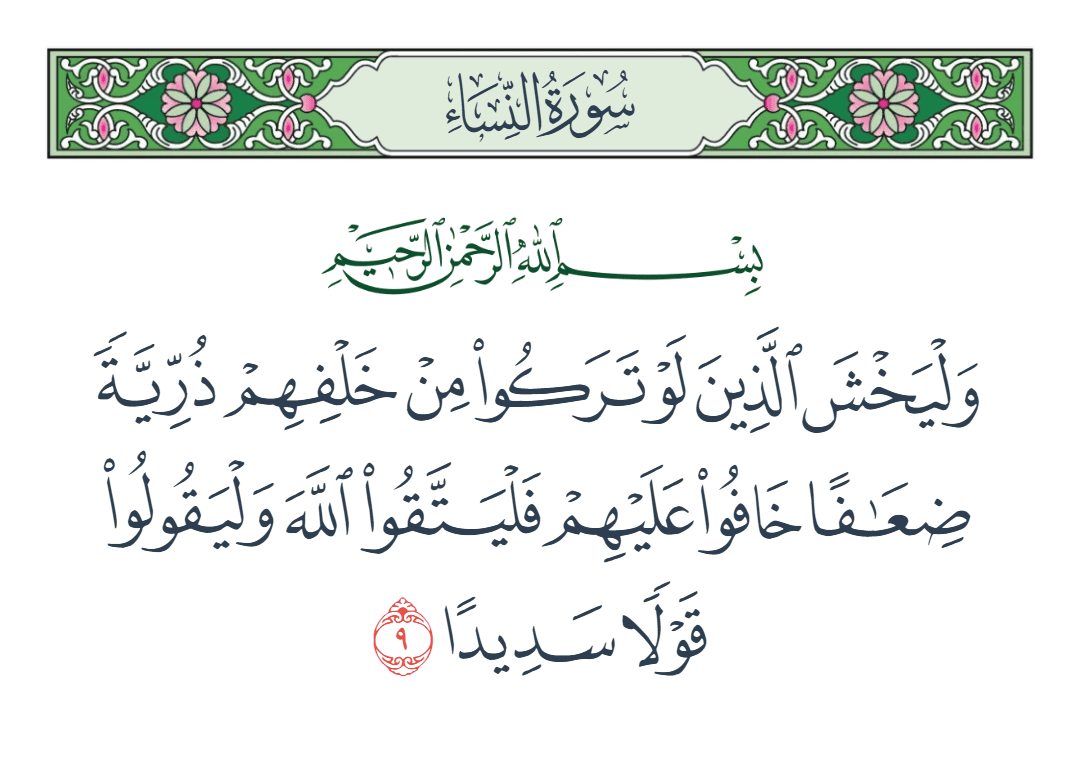 سُورَةُ النِّسَاءِ
بِسْمِ ٱللَّهِ ٱلرَّحْمَٰنِ ٱلرَّحِيمِ
وَلْيَخْشَ ٱلَّذِينَ لَوْ تَرَكُوا۟ مِنْ خَلْفِهِمْ ذُرِّيَّةً
ضِعَـٰفًا خَافُوا۟ عَلَيْهِمْ فَلْيَتَّقُوا۟ ٱللَّهَ وَلْيَقُولُوا۟
قَوْلًا سَدِيدًا ٩